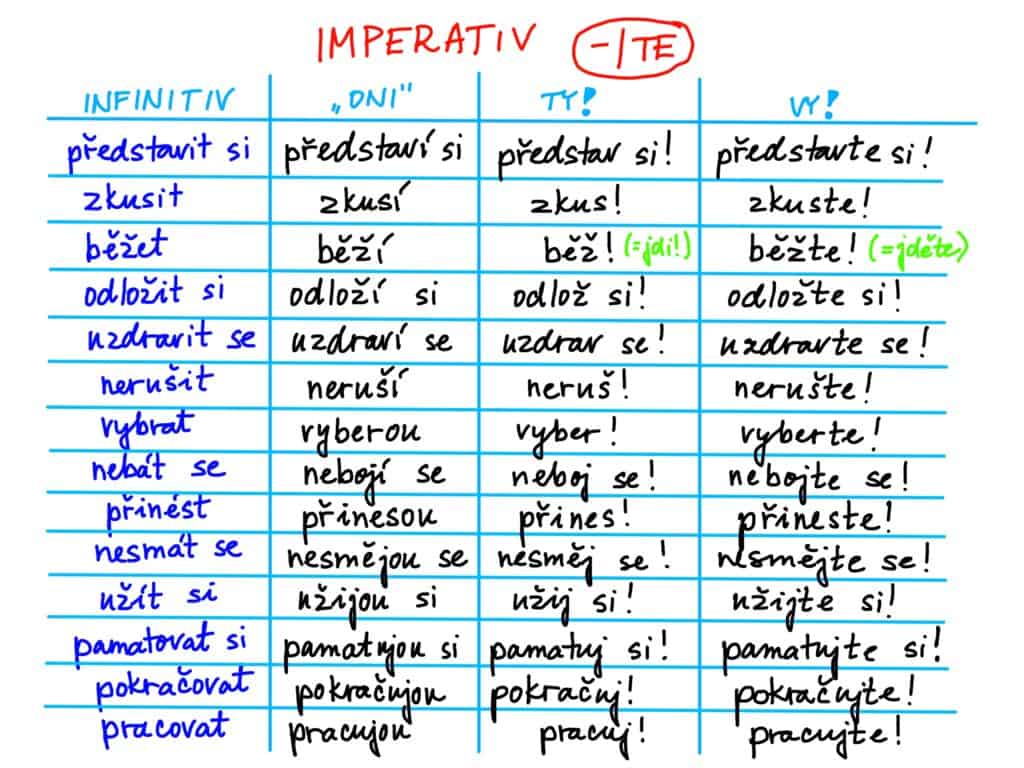 IMPERATIV -/TE
INFINITIV „ONI" TY! VY!
představit si představí si představ si! představte si!
zkusit zkusí zkus! zkuste!
běžet běží běž! (=jdi!) běžte! (=jděte)
odložit si odloží si odlož si! odložte si!
uzdravit se uzdraví se uzdrav se! uzdravte se!
nerušit neruší neruš! nerušte!
vybrat vyberou vyber! vyberte!
nebát se nebojí se neboj se! nebojte se!
přinést přinesou přines! přineste!
nesmát se nesmějou se nesměj se! nesmějte se!
užít si užijou si užij si! užijte si!
pamatovat si pamatujou si pamatuj si! pamatujte si!
pokračovat pokračujou pokračuj! pokračujte!
pracovat pracujou pracuj! pracujte!